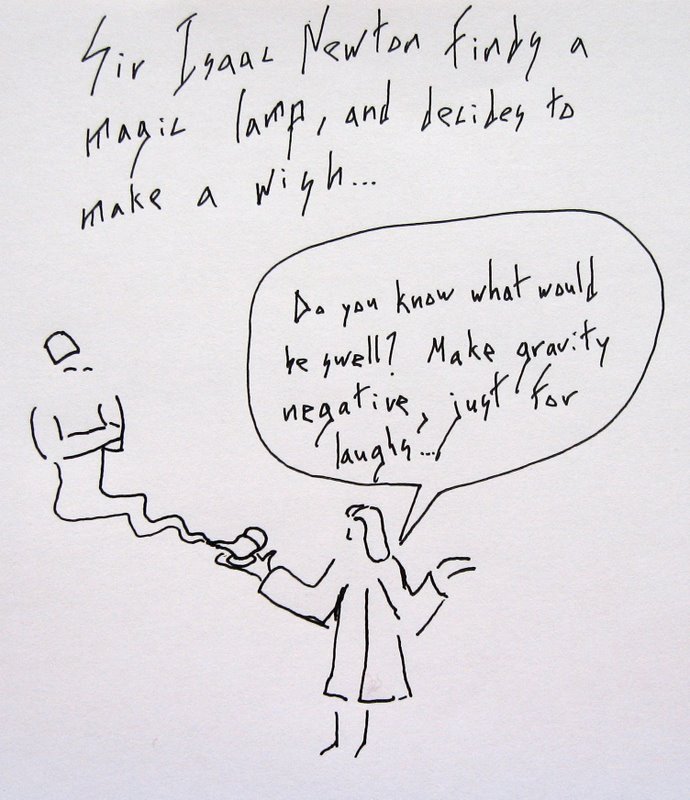 Sir Isaac Newton finds a
magic lamp, and decides to
make a wish...
Do you know what would
be swell? Make gravity
negative, just for
laughs...